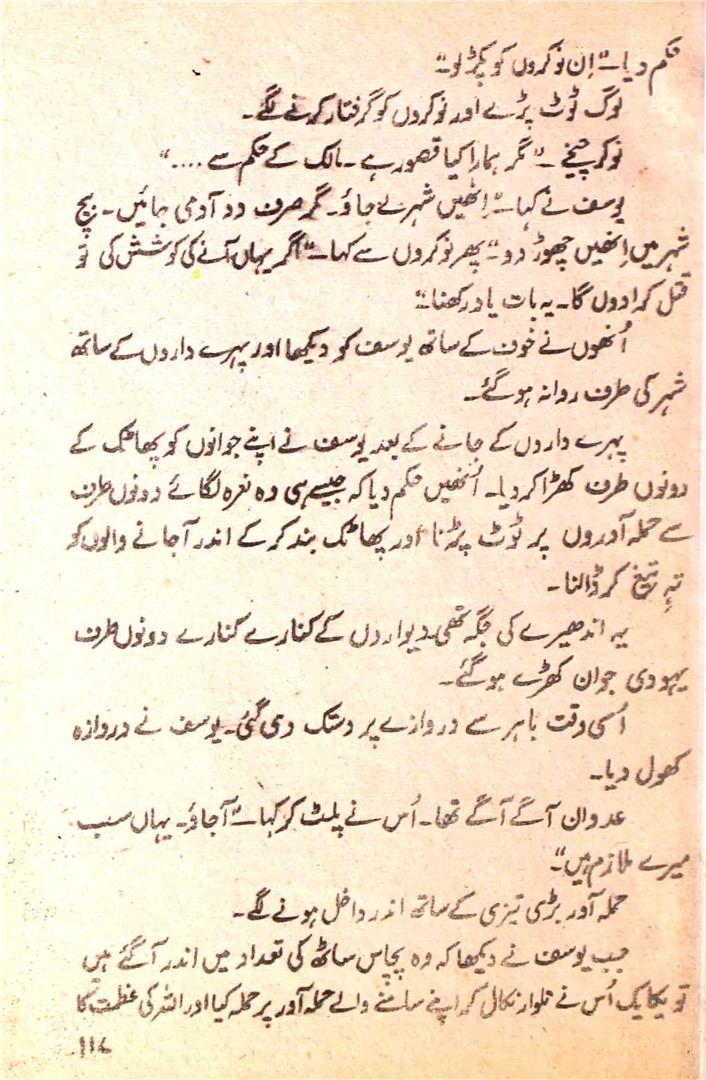 حکم دیا۔ "اِن نوکروں کو پکڑ لو"۔
لوگ ٹوٹ پڑے اور نوکروں کو گرفتار کرنے لگے۔
نوکر چیخے۔ "مگر ہمارا کیا قصور ہے۔ مالک کے حکم سے ...."
یوسف نے کہا۔ "اِنھیں شہر لے جاؤ۔ مگر صرف دو آدمی جائیں۔ بیچ
شہر میں اِنھیں چھوڑ دو"۔ پھر نوکروں سے کہا۔ "اگر یہاں آنے کی کوشش کی تو
قتل کرا دوں گا۔ یہ بات یاد رکھنا"۔
اُنھوں نے خوف کے ساتھ یوسف کو دیکھا اور پہرے داروں کے ساتھ
شہر کی طرف روانہ ہوگئے۔
پہرے داروں کے جانے کے بعد یوسف نے اپنے جوانوں کو پھاٹک کے
دونوں طرف کھڑا کر دیا۔ اُنھیں حکم دیا کہ جیسے ہی وہ نعرہ لگائے دونوں طرف
سے حملہ آوروں پر ٹوٹ پڑنا اور پھاٹک بند کر کے اندر آجانے والوں کو
تہِ تیغ کر ڈالنا۔
یہ اندھیرے کی جگہ تھی۔ دیواروں کے کنارے کنارے دونوں طرف
یہودی جوان کھڑے ہوگئے۔
اُسی وقت باہر سے دروازے پر دستک دی گئی۔ یوسف نے دروازہ
کھول دیا۔
عدوان آگے آگے تھا۔ اُس نے پلٹ کر کہا۔ "آجاؤ۔ یہاں سب
میرے ملازم ہیں"۔
حملہ آور بڑی تیزی کے ساتھ اندر داخل ہونے لگے۔
جب یوسف نے دیکھا کہ وہ پچاس ساٹھ کی تعداد میں اندر آگئے ہیں
تو یکایک اُس نے تلوار نکال کر اپنے سامنے والے حملہ آور پر حملہ کیا اور اللہ کی عظمت کا
۱۱۷